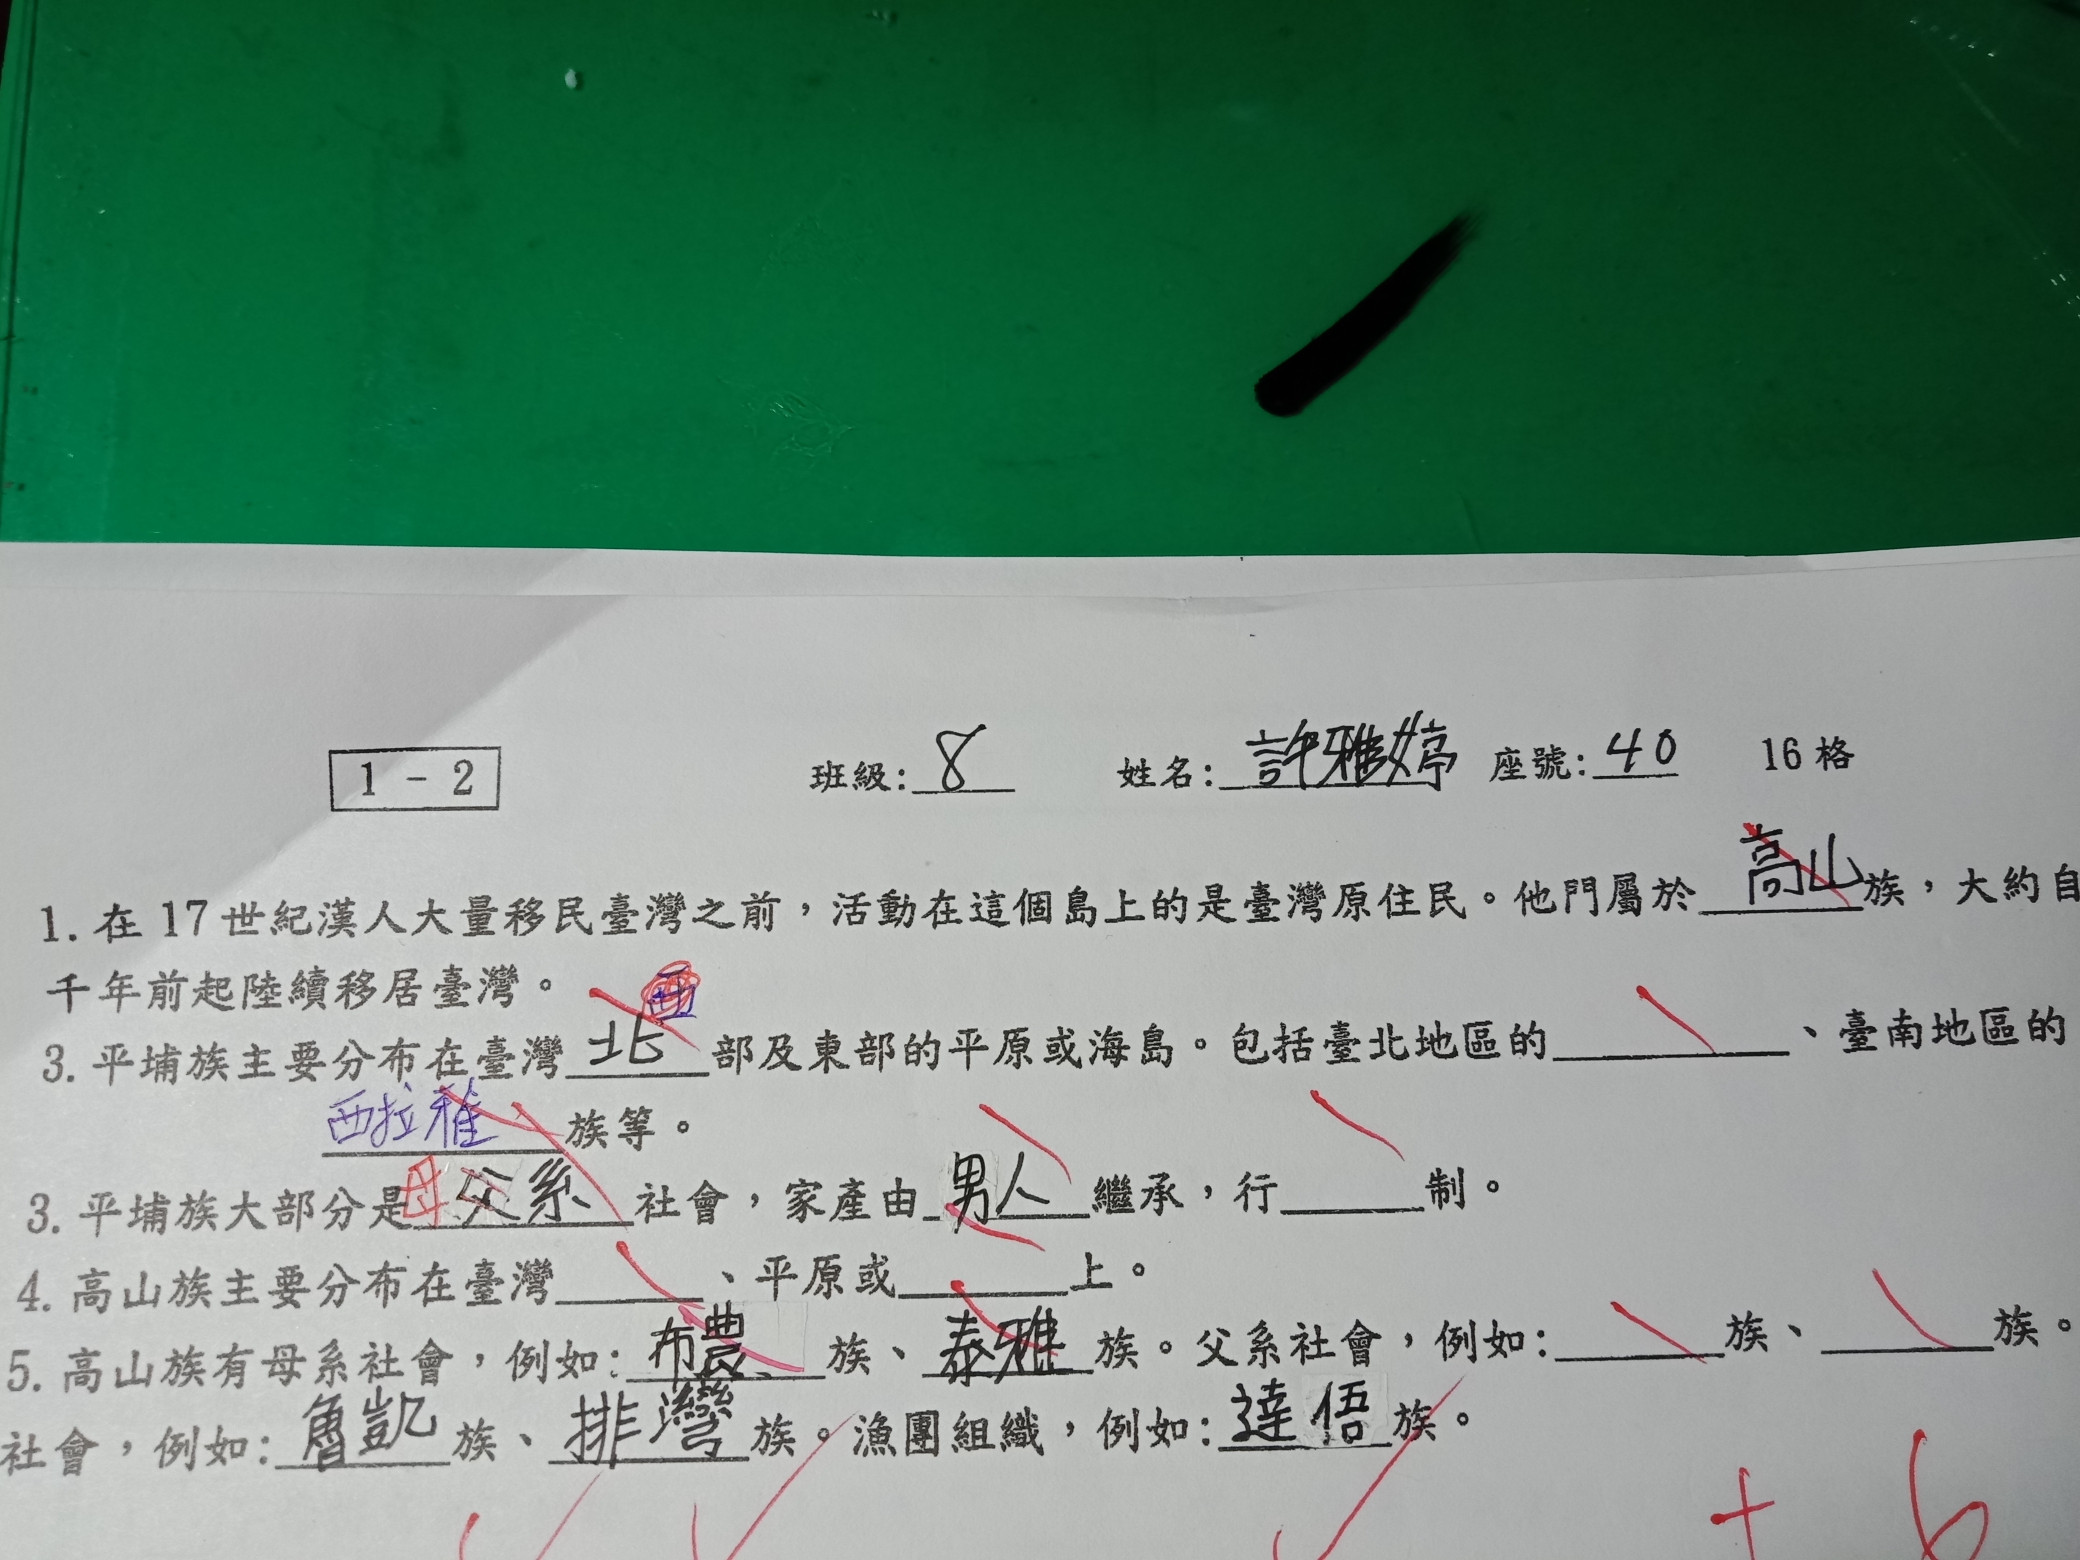 1 - 2 班級: 8 姓名: 許雅婷 座號: 40 16 格
1. 在 17 世紀漢人大量移民臺灣之前，活動在這個島上的是臺灣原住民。他門屬於 高山 族，大約自
千年前起陸續移居臺灣。
3. 平埔族主要分布在臺灣 北 部及東部的平原或海島。包括臺北地區的______、臺南地區的
西拉雅 族等。
3. 平埔族大部分是 母 父系 社會，家產由 男人 繼承，行______制。
4. 高山族主要分布在臺灣______、平原或______上。
5. 高山族有母系社會，例如: 布農 族、 泰雅 族。父系社會，例如:______族、______族。
社會，例如: 魯凱 族、 排灣 族。漁團組織，例如: 達悟 族。
+6